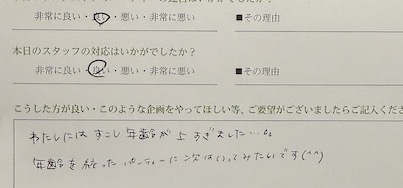 非常に良い・良い・悪い・非常に悪い ■その理由
本日のスタッフの対応はいかがでしたか？
非常に良い・良い・悪い・非常に悪い ■その理由
こうした方が良い・このような企画をやってほしい等、ご要望がございましたらご記入くださ
わたしには すこし 年齢が 上すぎました…。
年齢を絞ったパーティーに次はいってみたいです(^^)